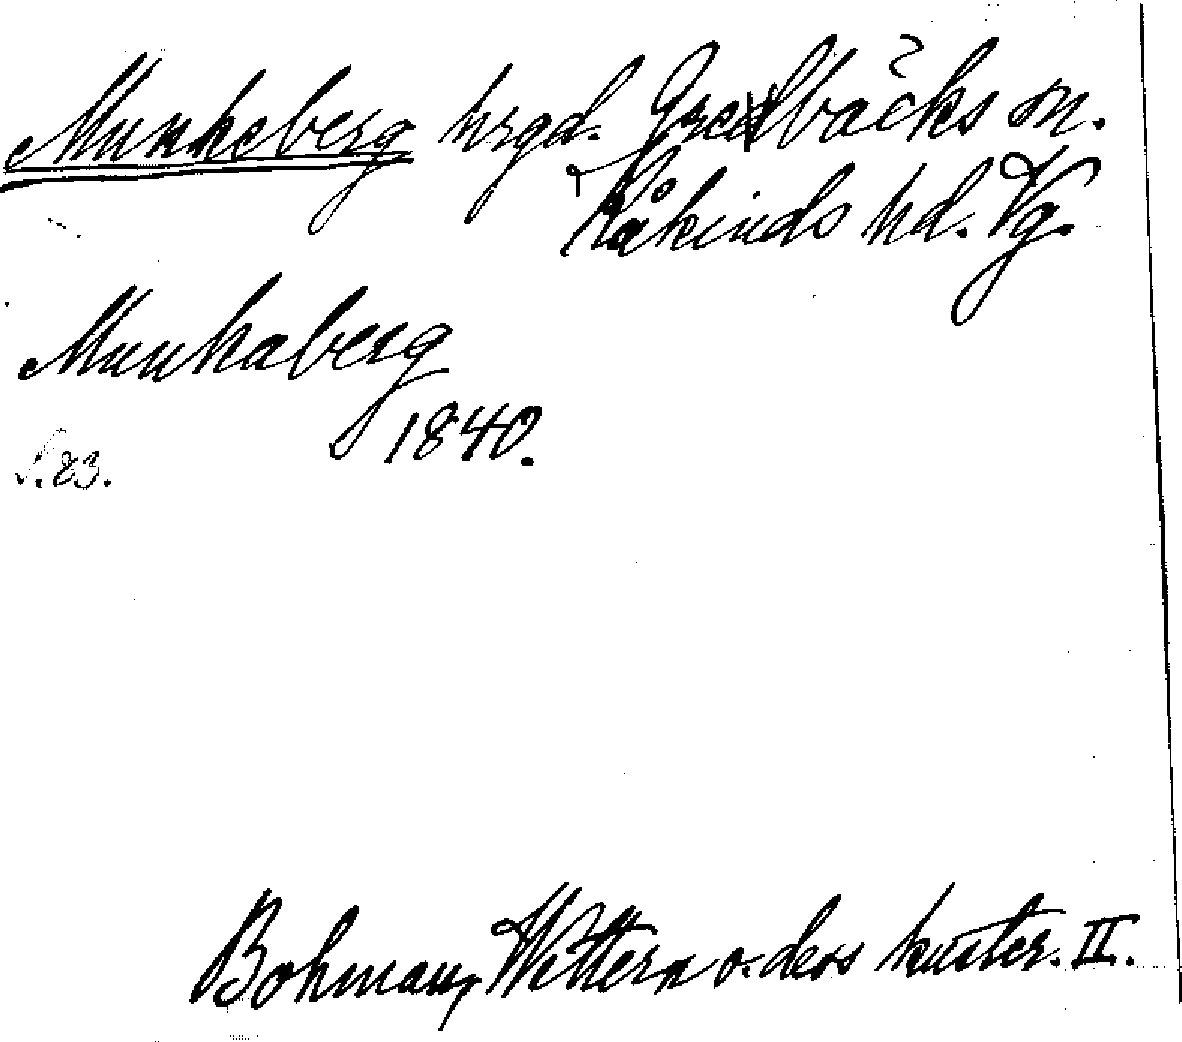 Munkeberg hrgd. Gredbäcks sn.
Kåkinds hd. Vg.
Munkaberg
1840.
S. 83.
Bohman, Wettern o. dess kuster. II.